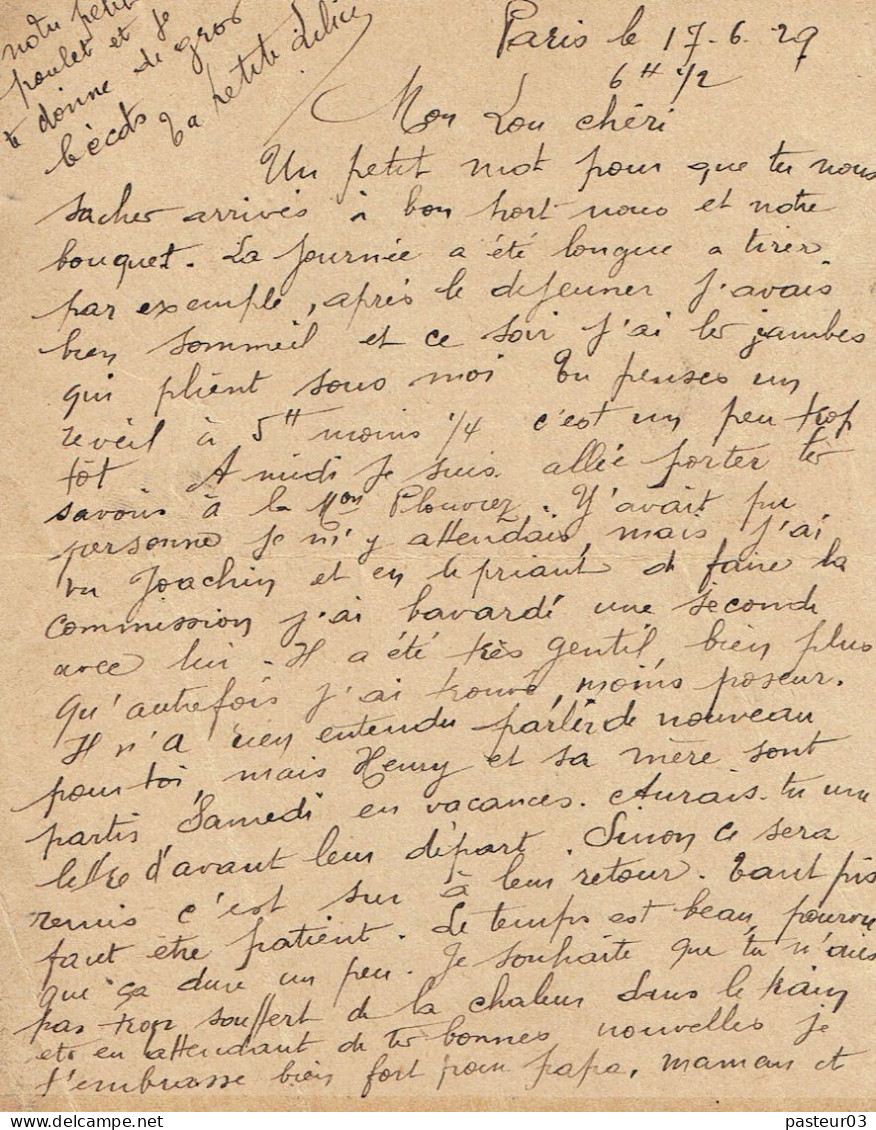 Paris le 17-6-29
6H 1/2
Mon Lou chéri
Un petit mot pour que tu nous
saches arrivés à bon port nous et notre
bouquet. La journée a été longue a tirer
par exemple, après le dejeuner j'avais
bien sommeil et ce soir j'ai les jambes
qui plient sous moi Tu penses un
reveil à 5H moins 1/4 c'est un peu trop
tôt A midi je suis allée porter tes
savons à la Mon Plouvrez. Y'avait pu
personne je m'y attendais, mais j'ai
vu Joachin et en le priant de faire la
commission j'ai bavardé une seconde
avec lui. Il a été très gentil, bien plus
qu'autrefois j'ai trouvé, moins poseur.
Il n'a rien entendu parler de nouveau
pour toi, mais Henry et sa mère sont
partis Samedi en vacances. Aurais-tu une
lettre d'avant leur départ. Sinon ce sera
remis c'est sur à leur retour. Tant pis
faut etre patient. Le temps est beau, pourvu
que ça dure un peu. Je souhaite que tu n'aies
pas trop souffert de la chaleur dans le train
et en attendant de tes bonnes nouvelles je
t'embrasse bien fort pour papa, maman et
notre petit
poulet et je
te donne de gros
bécots
Ta petite
pasteur03